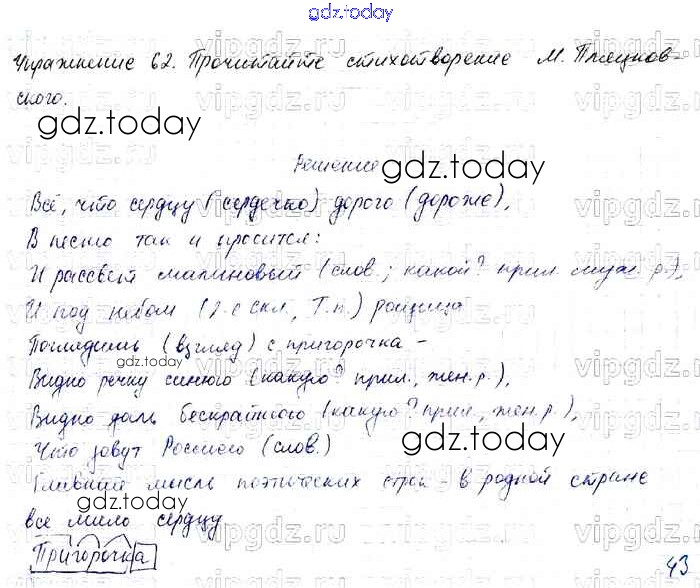 gdz.today
Упражнение 62. Прочитайте стихотворение М. Пляцков-
ского.
gdz.today
Решение
gdz.today
Всё, что сердцу (сердечко) дорого (дороже),
В песню так и просится:
И рассвет малиновый (слов.; какой? прил. муж. р.),
И под небом (2-е скл., Т.п.) рощица
Поглядишь (взгляд) с пригорочка –
gdz.today
Видно речку синюю (какую? прил., жен.р.),
Видно даль бескрайнюю (какую? прил., жен.р.),
gdz.today
Что зовут Россиею (слов.)
Главный мысль поэтических строк - в родной стране
gdz.today
все мило сердцу
Пригорочка
43
vipgdz.ru